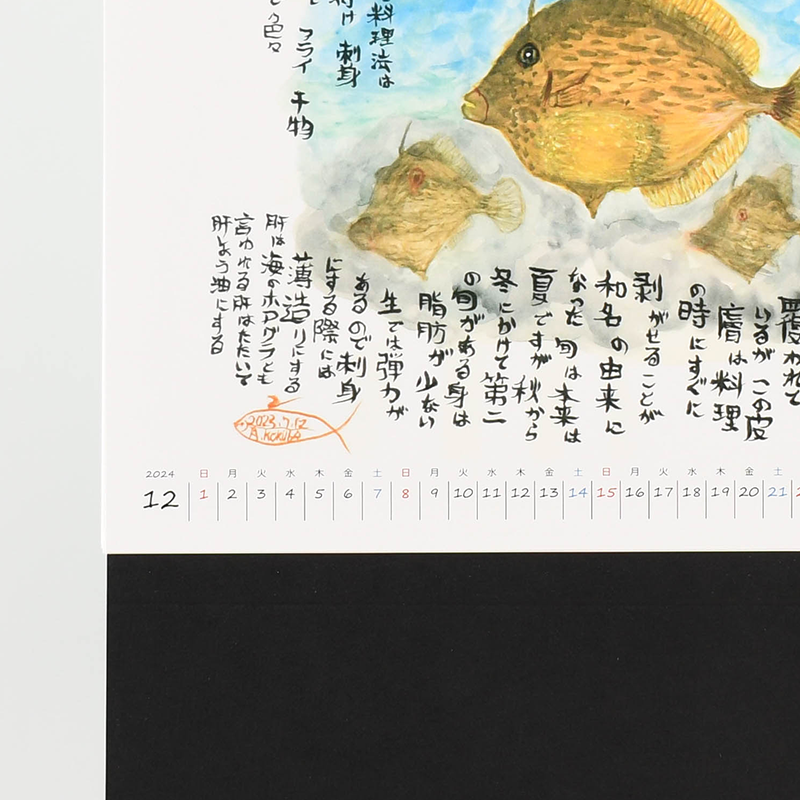 料理法は
付け 刺身
フライ 干物
色々
覆われて
いるが この皮
膚は料理
の時にすぐに
剥がせることが
和名の由来に
なった 旬は本来は
夏ですが 秋から
冬にかけて第二
の旬がある身は
脂肪が少ない
生では弾力が
あるので刺身
にする際には
薄造りにする
肝は海のホアグラとも
言われる肝はたたいて
肝しょう油にする
2023.7.12
A.KOKUBA
2024
12
日 月 火 水 木 金 土 日 月 火 水 木 金 土 日 月 火 水 木 金 土
1 2 3 4 5 6 7 8 9 10 11 12 13 14 15 16 17 18 19 20 21